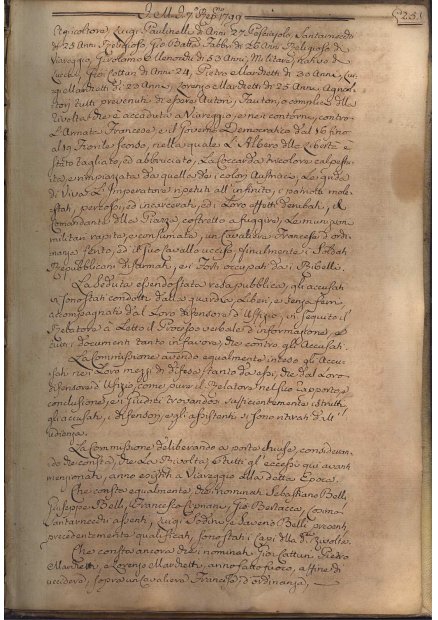 (25.)
Agricoltore, Luigi Paulinelli di Anni 27. Possidente Santarnecchi
di 25 Anni Religioso Gio: Batta Fabbri di 26 Anni Religioso di
Viareggio, Girolamo di 53 Anni, Militare, nativo di
Lucca, Gio: Cottari di Anni 24, Pietro Mardretti di 30 Anni, Lui-
gi Mardretti di 23 Anni, Lorenzo Mardretti di 25 Anni, Agricol-
tori tutti prevenuti di essere Autori, Fautori, o complici della
Rivolta che è accaduta a Viareggio, e nei contorni, contro
L'Armata Francese, e il Governo Democratico dal 16 fino
al 10 Fiorile secondo, nella quale L'Albero della Libertà è
stato tagliato, ed abbruciato, La Coccarda tricolore calpesta-
ta, e rimpiazzata da quella dei colori Austriaci, Le grida
di Viva L'Imperatore ripetuti all'infinito, i patrioti mole-
stati, percossi, ed incarcerati, ed i Loro effetti derubati, il
Comandante della Piazza costretto a fuggire, Le munizioni
militari rapite, e consumate, un Cavaliere Francese d'ordi-
nanza ferito, ed il suo cavallo ucciso, finalmente i Soldati
Repubblicani disarmati, e i Forti occupati dai Ribelli.
La Seduta essendo stata resa pubblica, gli accusati
vi sono stati condotti dalla guardia, Liberi, e senza ferri
accompagnati dal Loro difensore d'Ufizio, in seguito il
Relatore à Letto il Processo verbale d'informazione, e
tutti i documenti tanto in favore, che contro gli Accusati.
La Commissione avendo egualmente inteso gli Accu-
sati nei Loro mezzi di difesa tanto da essi, che dal Loro
difensore d'Ufizio, come pure il Relatore nel suo rapporto, e
conclusione, e i Giudici trovandosi sufficientemente istruiti
gli accusati, i difensori, e gli assistenti si sono ritirati dall'U-
dienza.
La Commissione deliberando a porte chiuse, consideran-
do che consta, che La Rivolta, e tutti gli eccessi qui avanti
menzionati, anno esistito a Viareggio alla detta Epoca.
Che consta egualmente che i nominati Sebastiano Belli
Giuseppe Belli, Francesco Cipriani, Gio: Bertacca, Cosimo
Santarnecchi assenti, Luigi Sodini, e Saverio Belli presenti,
precedentemente qualificati, sono stati i Capi della da. Rivolta.
Che consta ancora che i nominati Gio: Cottari Pietro
Mardretti, e Lorenzo Mardretti, anno fatto fuoco, a fine di
uccidere, sopra un Cavaliere Francese d'ordinanza,